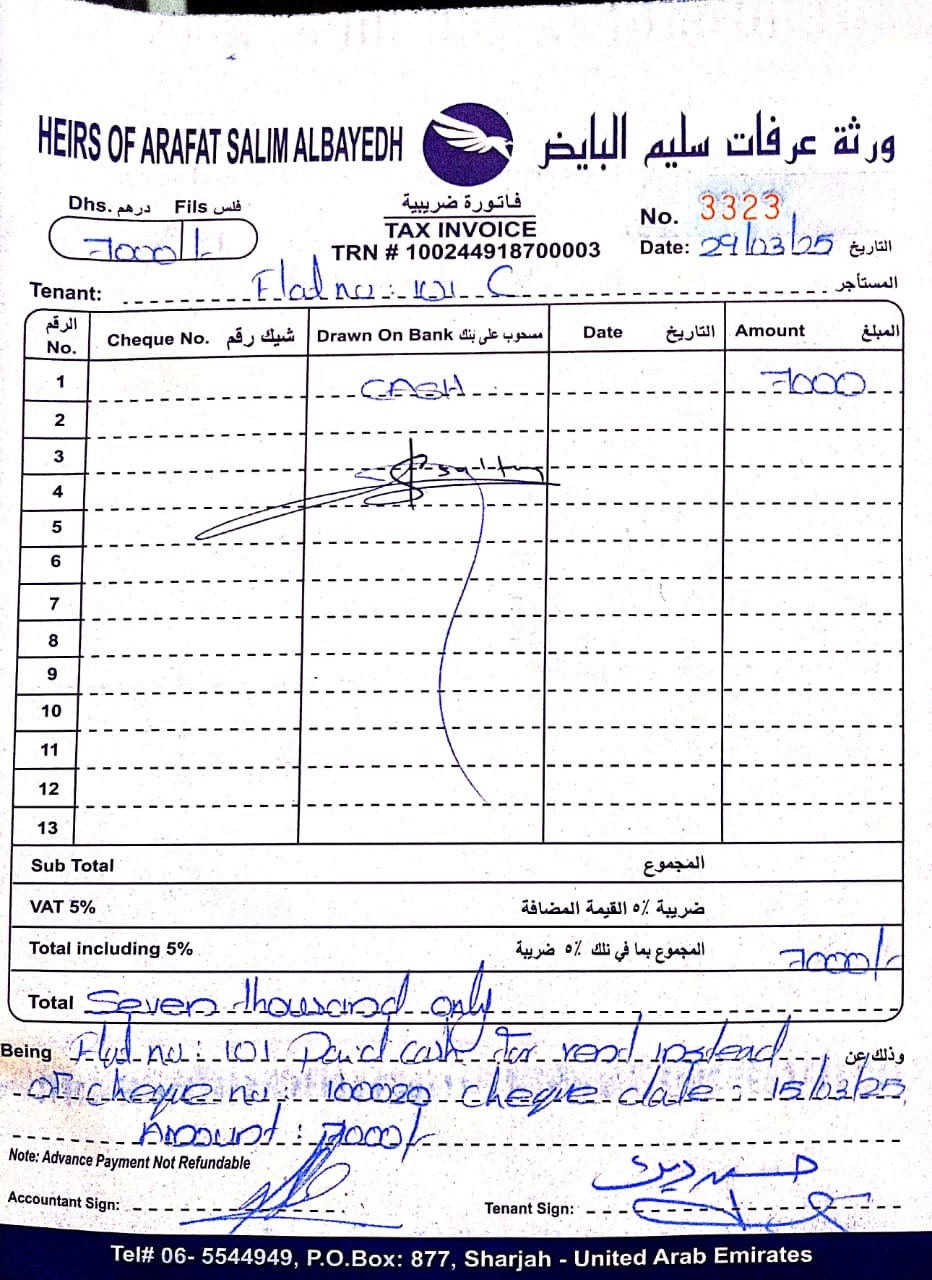 HEIRS OF ARAFAT SALIM ALBAYEDH ورثة عرفات سليم البايض
Dhs. درهم Fils فلس
7000/-
فاتورة ضريبية
TAX INVOICE
TRN # 100244918700003
No. 3323
Date: 29/03/25 التاريخ
Tenant: Flat no: 101 C المستأجر
الرقم No. Cheque No. شيك رقم Drawn On Bank مسحوب على بنك Date التاريخ Amount المبلغ
1 CASH 7000
2
3
4
5
6
7
8
9
10
11
12
13
Sub Total المجموع
VAT 5% ضريبة ٥% القيمة المضافة
Total including 5% المجموع بما في ذلك ٥% ضريبة 7000/-
Total Seven thousand only
Being Flat no: 101 Paid cash for rend instead وذلك عن
OF cheque no: 100020 cheque date: 15/03/25
Amount: 7000/-
Note: Advance Payment Not Refundable
Accountant Sign: Tenant Sign:
Tel# 06- 5544949, P.O.Box: 877, Sharjah - United Arab Emirates